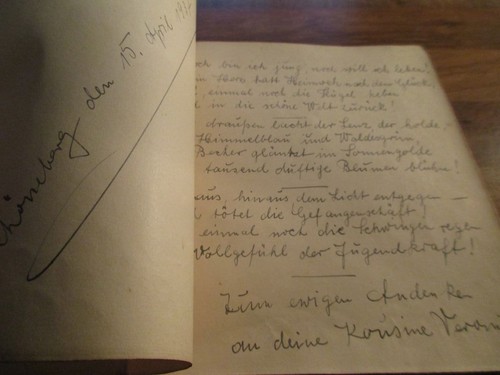 den 15. April
noch bin ich jung, noch will ich leben!
Herz hat Heimweh nach dem Glück
einmal noch die Flügel heben
in die schöne Welt zurück!
draußen lacht der Lenz, der holde,
Himmelblau und Waldesgrün,
Bender glänzet im Sonnengolde
tausend duftige Blumen blühen!
aus, hinaus dem Licht entgegen –
tötet die Gefangenschaft!
einmal noch die Schwingen regen
Vollgefühl der Jugendkraft!
Zum ewigen Andenken
an deine Kousine